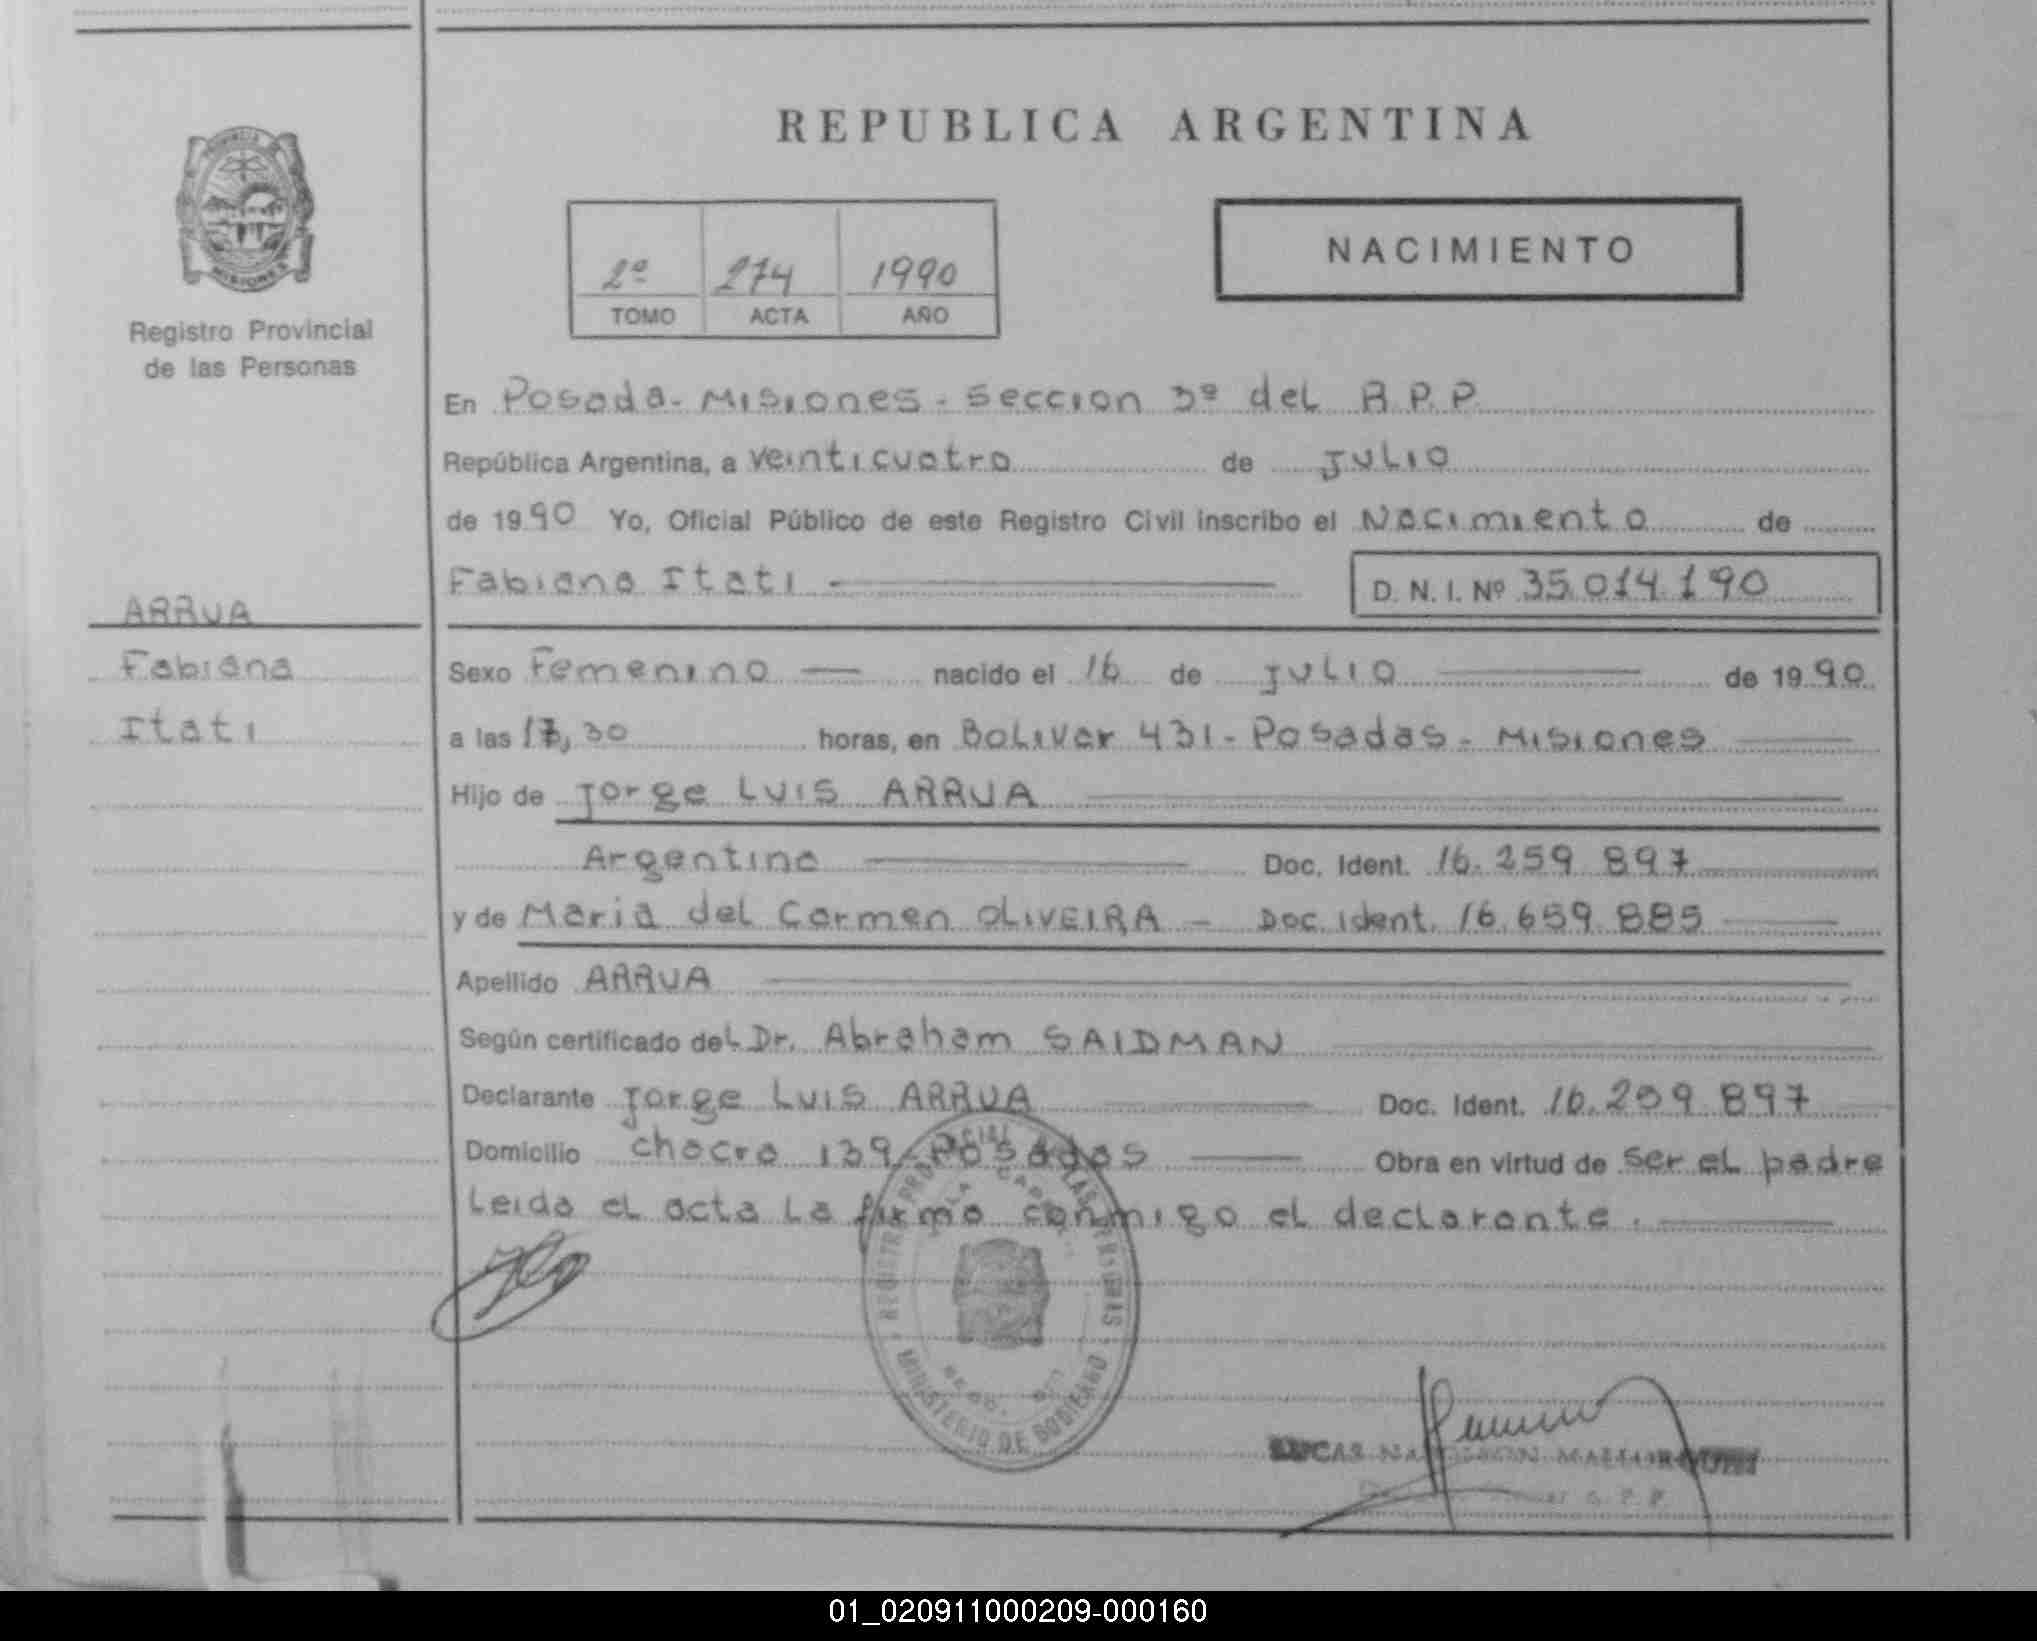 REPUBLICA ARGENTINA
PROVINCIA
MISIONES
Registro Provincial
de las Personas
2º 274 1990
TOMO ACTA AÑO
NACIMIENTO
En Posada - Misiones - Seccion 3º del R.P.P.
República Argentina, a Veinticuatro de Julio
de 1990 Yo, Oficial Público de este Registro Civil inscribo el Nacimiento de
Fabiana Itati
D. N. I. Nº 35.014.190
ARRUA
Fabiana
Itati
Sexo Femenino nacido el 16 de Julio de 1990
a las 30 horas, en Bolivar 431 - Posadas - Misiones
Hijo de Jorge Luis ARRUA
Argentina Doc. Ident. 16.259.897
y de Maria del Carmen OLIVEIRA - Doc. Ident. 16.659.885
Apellido ARRUA
Según certificado del Dr. Abraham SAIDMAN
Declarante Jorge Luis ARRUA Doc. Ident. 16.259.897
Domicilio chacra 139 - Posadas Obra en virtud de ser el padre
Leida el acta La firma conmigo el declarante.
REGISTRO PROVINCIAL LAS PERSONAS
MINISTERIO DE GOBIERNO
LUCAS
01_020911000209-000160